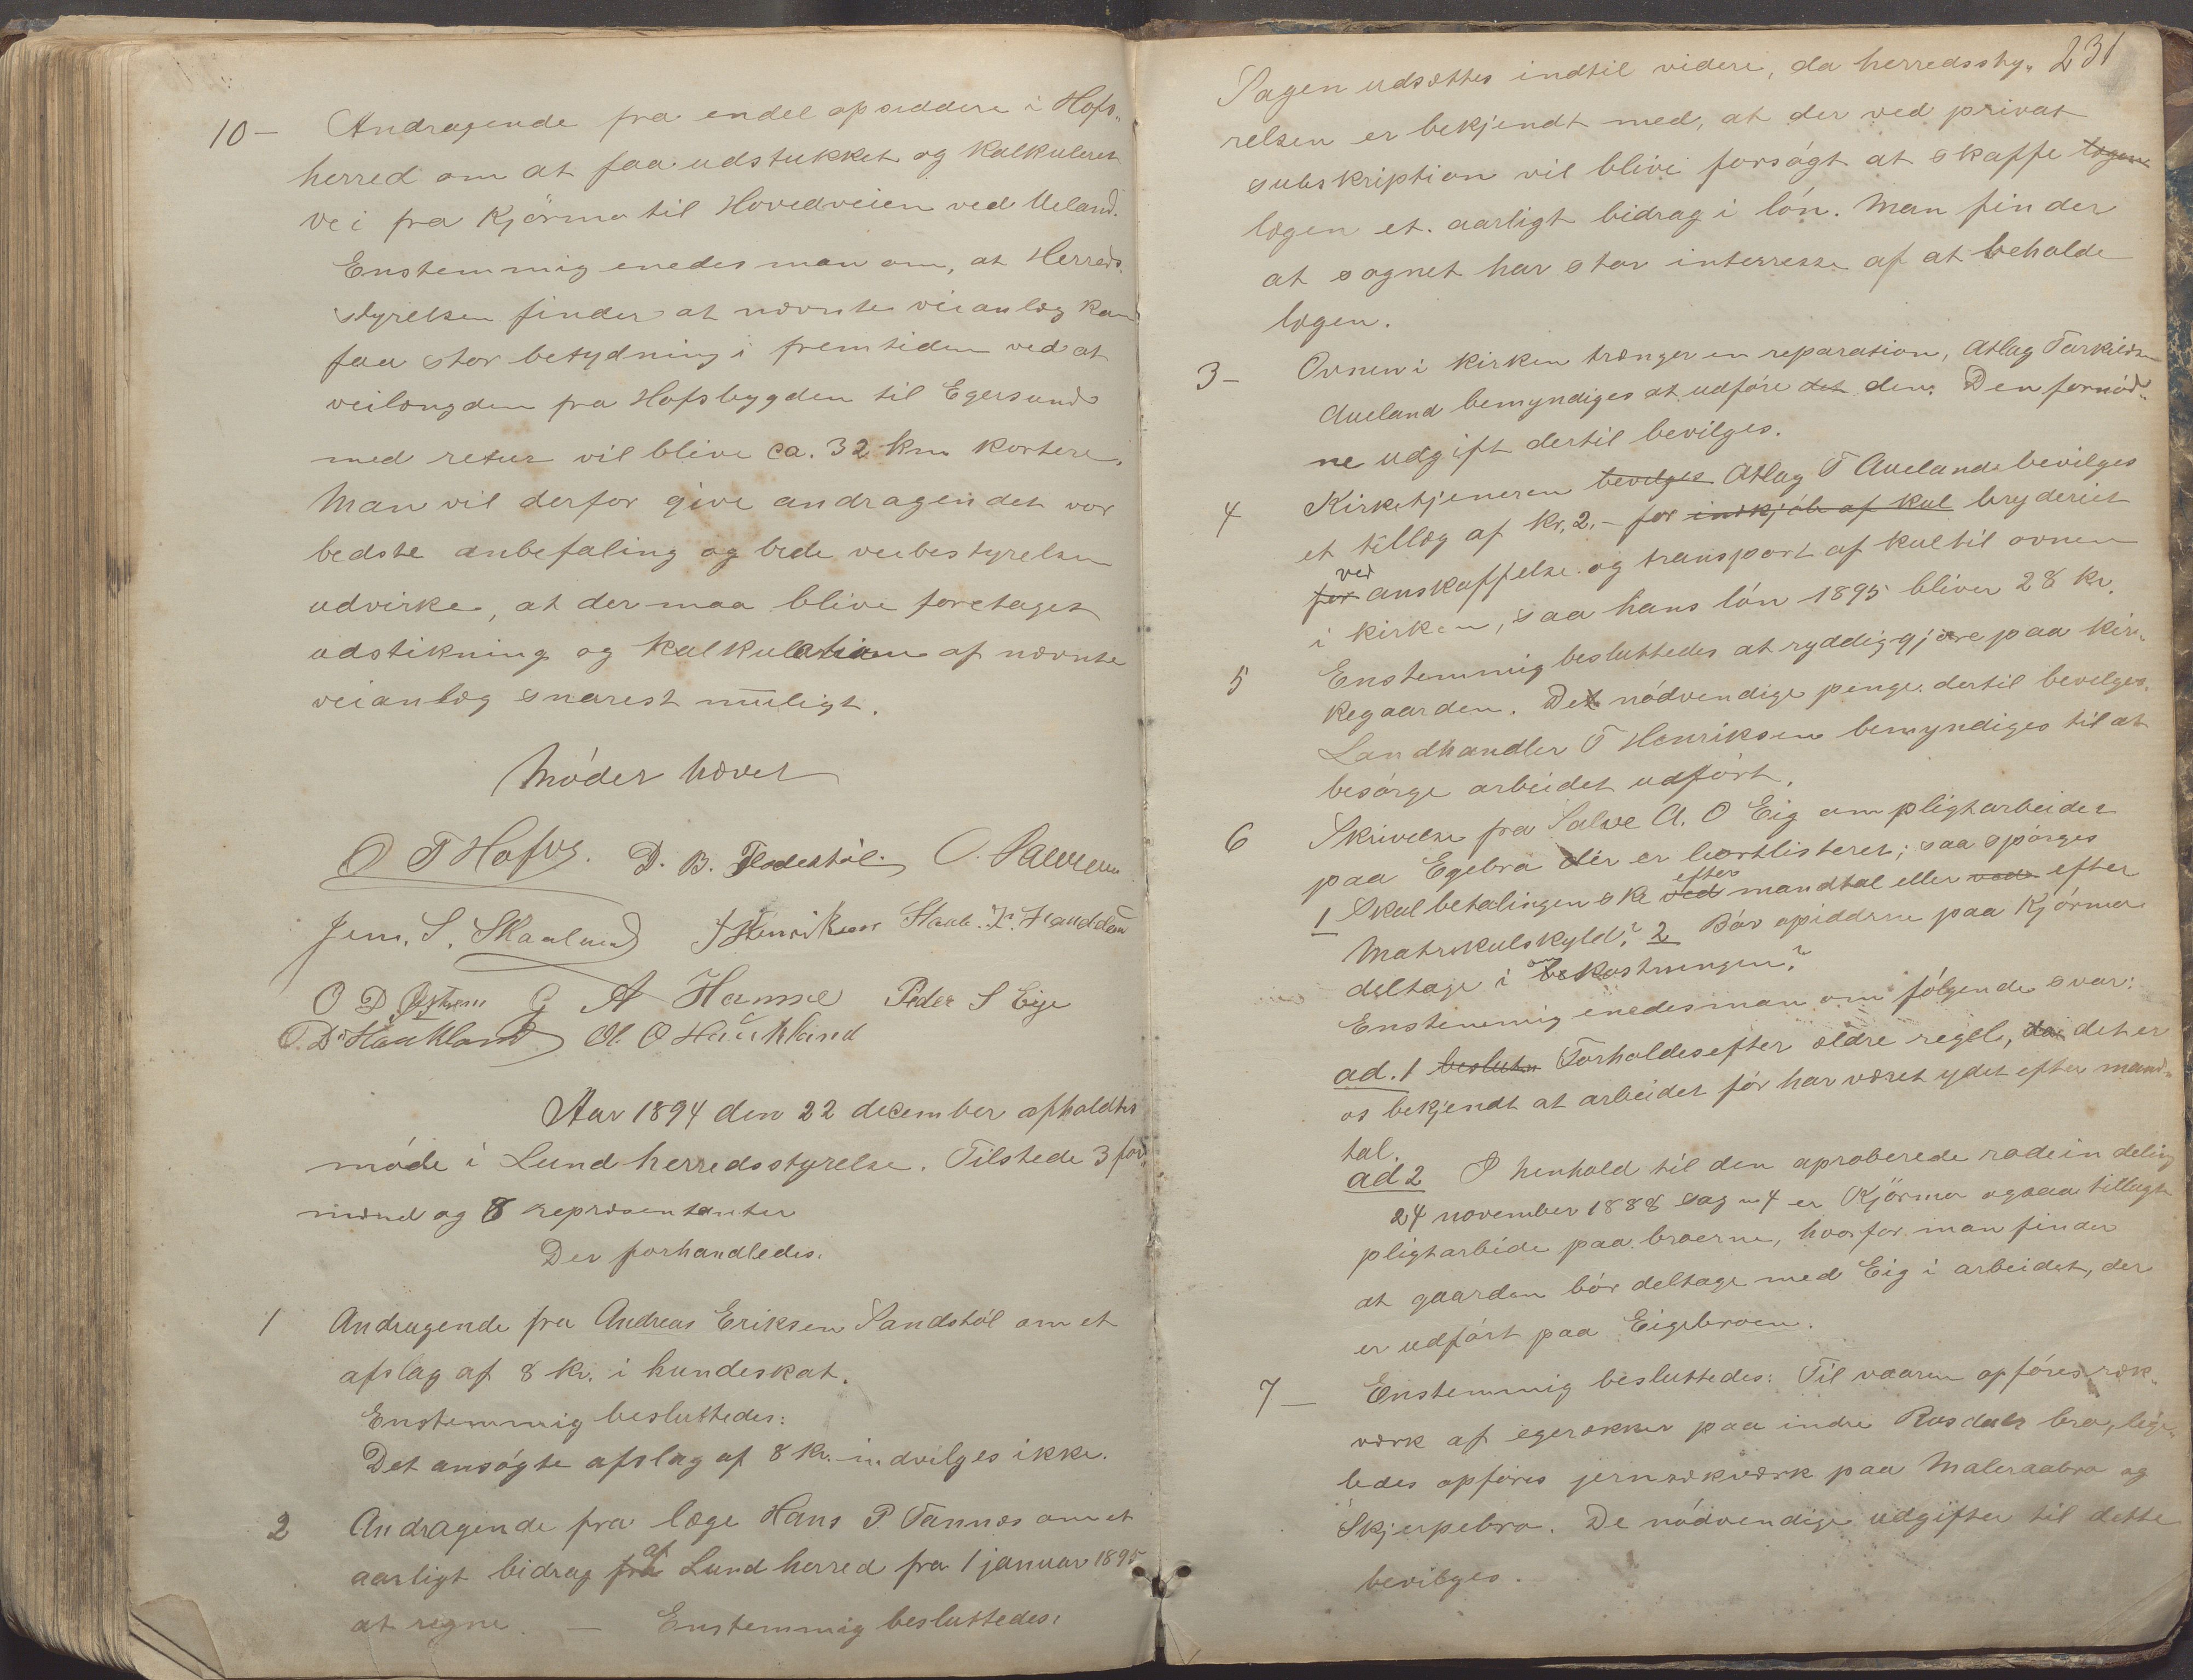 10- Andragende fra endel opsiddere i Hofs-
herred om at faa udstukket og kalkuleret
vei fra Kjörmo til Hovedveien ved Ueland.
Enstemmig enedes man om, at Herreds-
styrelsen finder at nævnte veianlæg kan
faa stor betydning i fremtiden ved at
veilængden fra Hofsbygden til Egersund
med retur vil blive ca. 32 km kortere.
Man vil derfor give andragendet vor
bedste anbefaling og bede veibestyrelsen
udvirke, at der maa blive foretaget
udstikning og kalkulation af nævnte
veianlæg snarest muligt.
Mödet hævet
O T Hofvs. D. B. Flodestöl. O. Laur
Jem. S. Skaaland T Henriksen
O D G A Hamre Peder S Eige
O. D. Haukland Ol. O Haukland
Aar 1894 den 22 december afholdtes
möde i Lund herredsstyrelse. Tilstede 3 for-
mænd og 8 repræsentanter
Der forhandledes:
1 Andragende fra Andreas Eriksen Sandstöl om et
afslag af 8 kr. i hundeskat.
Enstemmig besluttedes:
Det ansögte afslag af 8 Kr. indvilges ikke.
2 Andragende fra læge Hans P. Tannæs om et
aarligt bidrag fra af Lund herred fra 1 januar 1895
at regne. — Enstemmig besluttedes:
231
Sagen udsættes indtil videre, da herredssty-
relsen er bekjendt med, at der ved privat
subskription vil blive forsögt at skaffe lægen
lægen et aarligt bidrag i lön. Man finder
at sognet har stor interresse af at beholde
lægen.
3- Ovnen i kirken trænger en reparation, Atlag Tarkildsen
Aueland bemyndiges at udföre det den. Den fornöd-
ne udgift dertil bevilges.
4 Kirketjeneren bevilges Atlag T Aueland bevilges
et tillæg af kr. 2.- for indkjöb af kul bryderiet
for ved anskaffelse og transport af kul til ovnen
i kirken, saa hans lön 1895 bliver 28 kr.
5 Enstemmig besluttedes at ryddiggjøre paa kir-
kegaarden. De nödvendige penge dertil bevilges.
Landhandler T Henriksen bemyndiges til at
besörge arbeidet udfört.
6 Skrivelse fra Salve A. O Eig om pligtarbeidet
paa Egebra der er bortlisteret; saa spörges
1 Skal betalingen ske ved efter mandtal eller ved efter
Matrikulskyld? 2 Bör opsidderne paa Kjörmo
deltage i bekostningen?
Enstemmig enedes man om fölgende svar:
ad. 1 beslutn Forholdes efter ældre regel, da det er
os bekjendt at arbeidet för har været ydet efter mand-
tal.
ad 2 I henhold til den aproberede rodeindeling
24 november 1888 sag n 4 er Kjörmo ogsaa tillagt
pligtarbeide paa broerne, hvorfor man finder
at gaarden bör deltage med Eig i arbeidet, der
er udfört paa Eigebroen.
7- Enstemmig besluttedes: Til vaaren opföres ræk-
værk af egerækker paa indre Rosdals bro, lige-
ledes opföres jernrækværk paa Moleraabro og
Skjerpebro. De nödvendige udgifter til dette
bevilges.